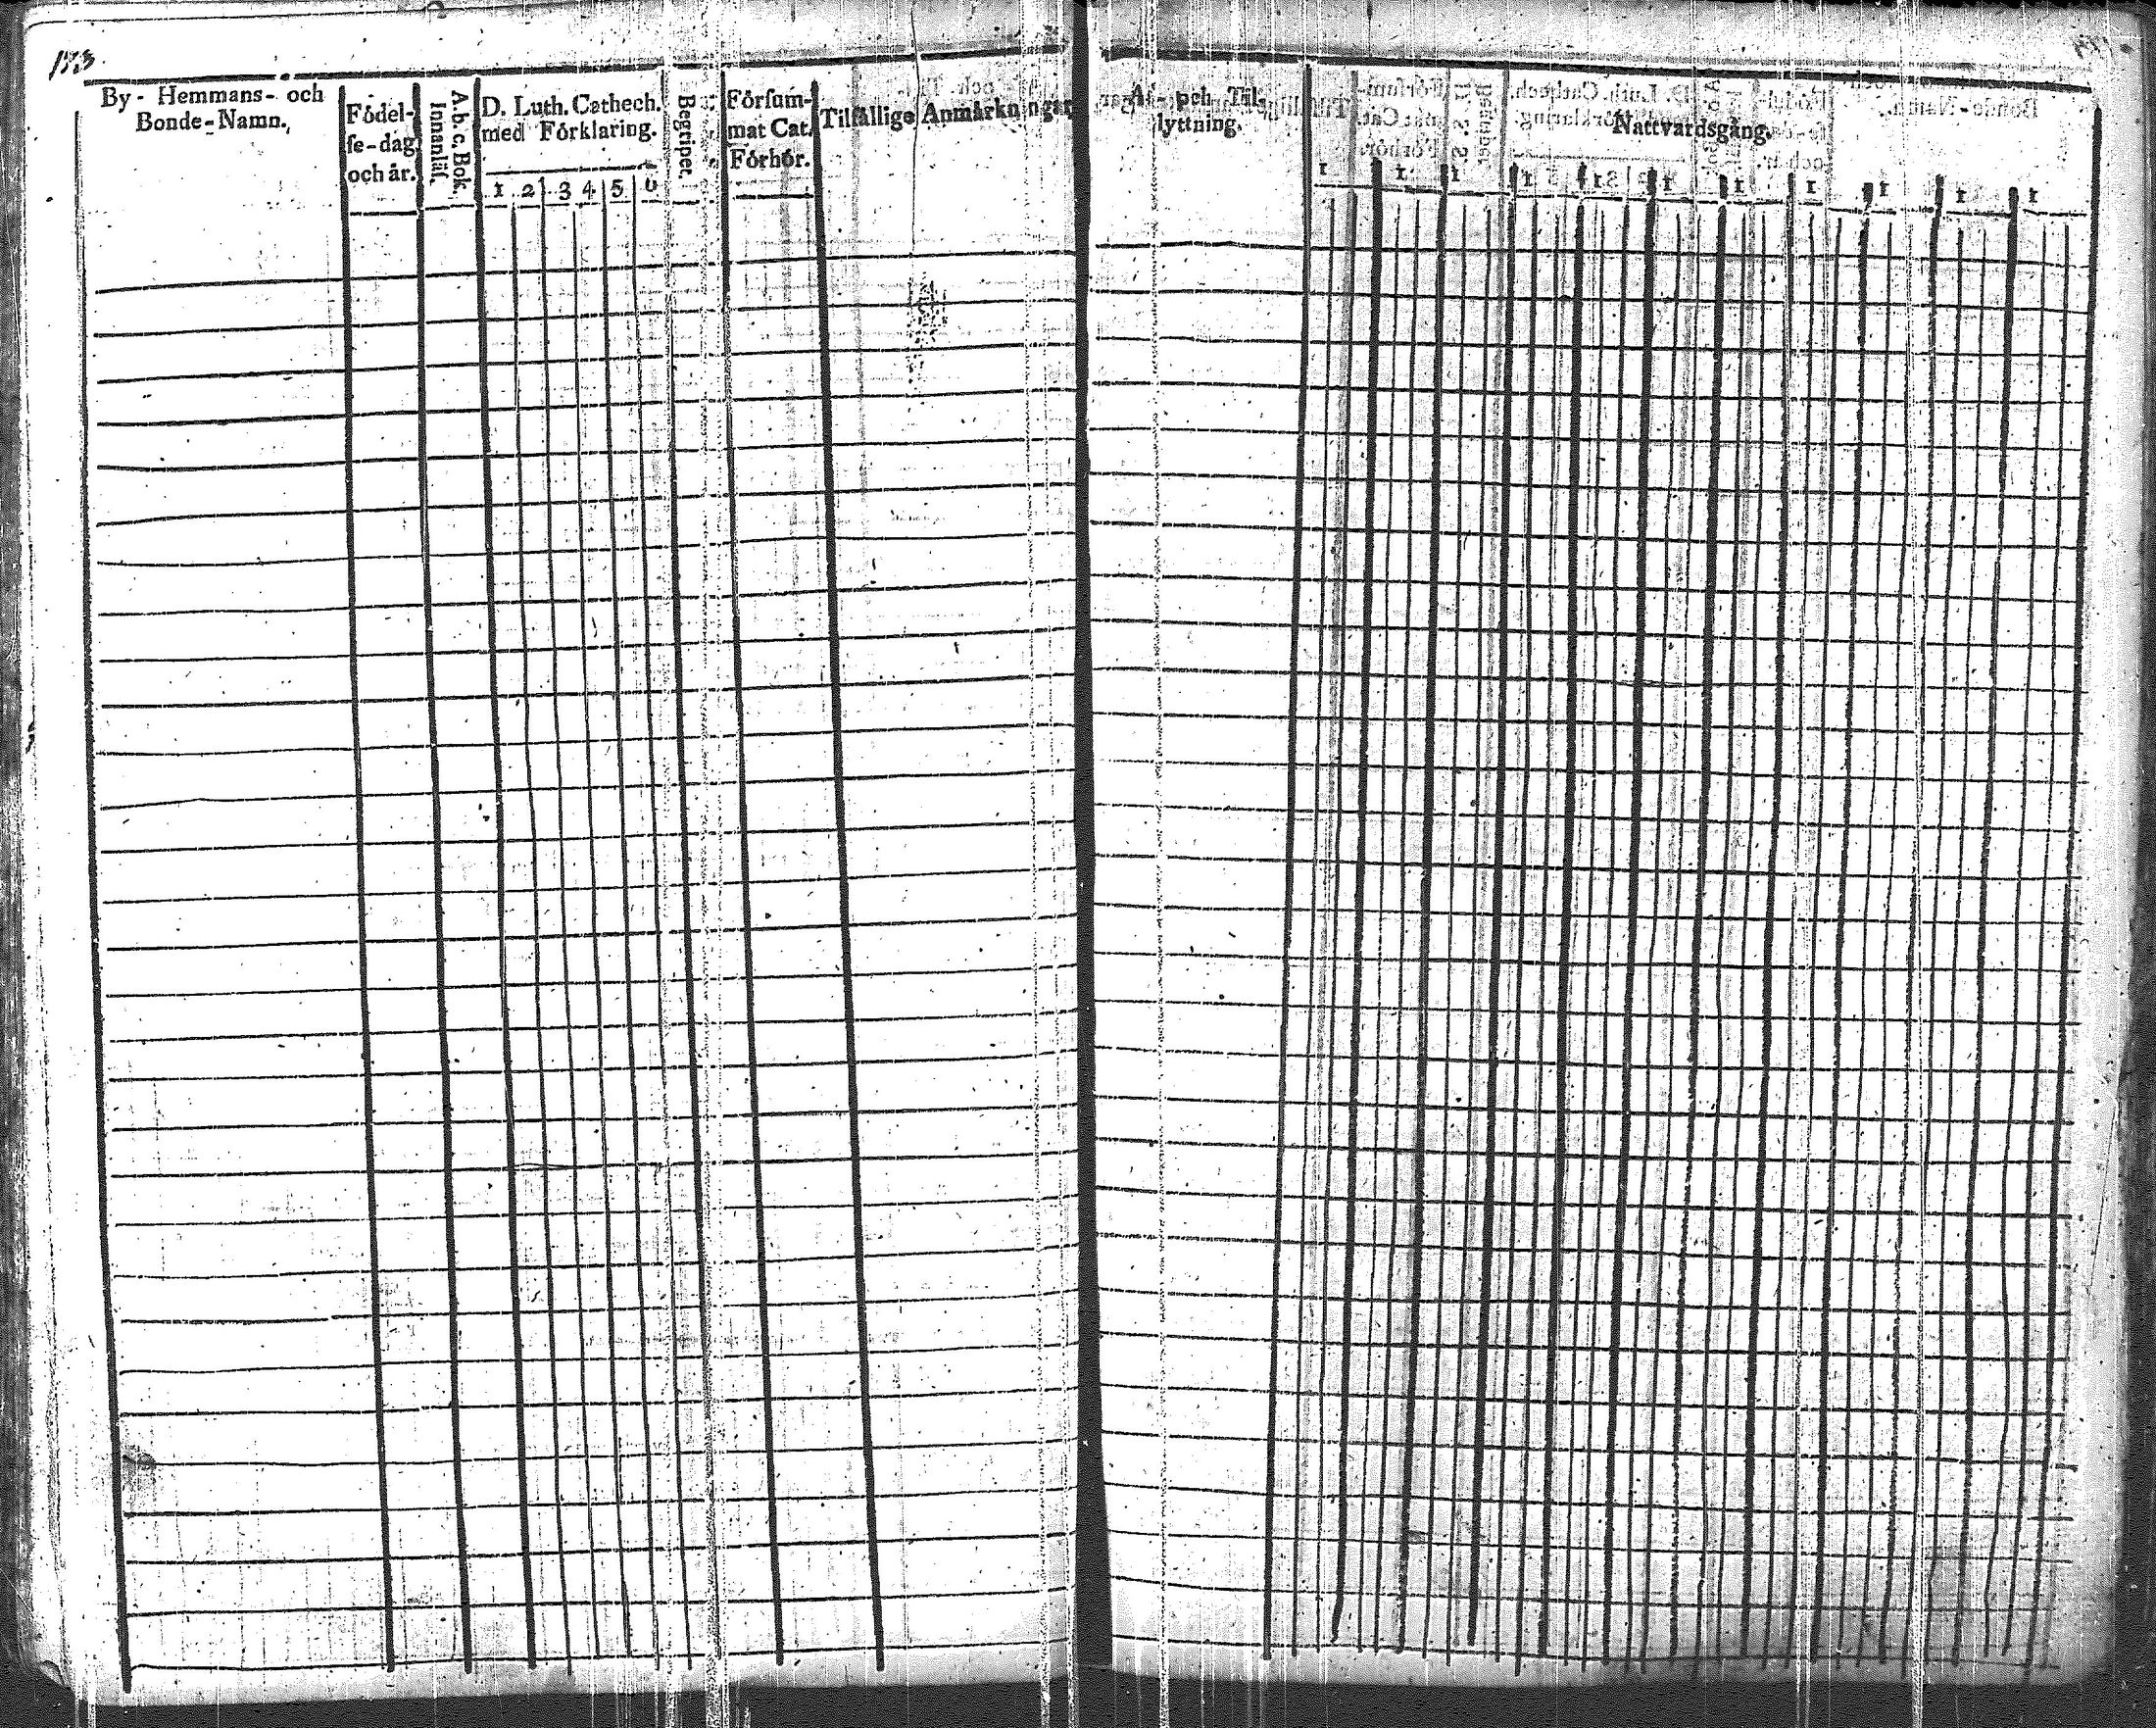 173
By- Hemmans- och
Bonde-Namn.
Födel-
se-dag
och år.
A.b.c. Bok.
Innanläs.
D. Luth. Cathech.
med Förklaring.
1 2 3 4 5 6
Begripet.
Försum-
mat Cat.
Förhör.
Tilfällige Anmärkningar
Af- och Til-
lyttning.
Nattvardsgång.
1 1 1 1 1 1 1 1 1 1 1